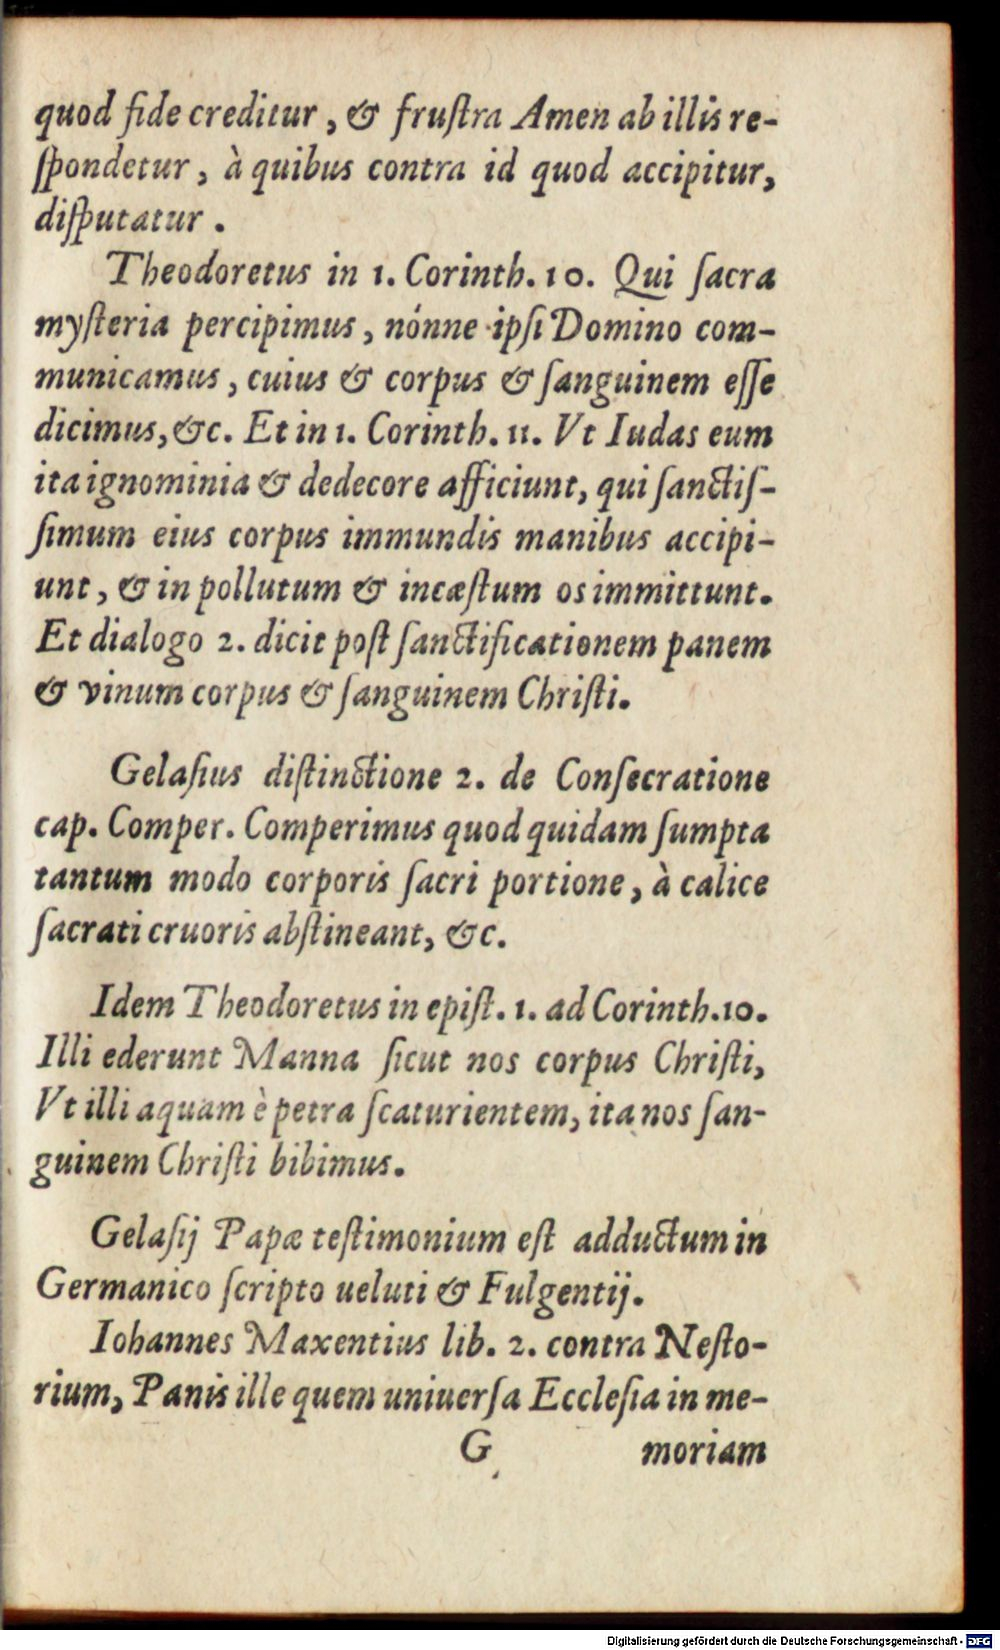 quod fide creditur, & fruſtra Amen ab illis re-
ſpondetur, à quibus contra id quod accipitur,
diſputatur.
Theodoretus in 1. Corinth. 10. Qui ſacra
myſteria percipimus, nónne ipſi Domino com-
municamus, cuius & corpus & ſanguinem eſſe
dicimus, &c. Et in 1. Corinth. 11. Vt Iudas eum
ita ignominia & dedecore afficiunt, qui ſanctiſ-
ſimum eius corpus immundis manibus accipi-
unt, & in pollutum & incæſtum os immittunt.
Et dialogo 2. dicit poſt ſanctificationem panem
& vinum corpus & ſanguinem Chriſti.
Gelaſius diſtinctione 2. de Conſecratione
cap. Comper. Comperimus quod quidam ſumpta
tantum modo corporis ſacri portione, à calice
ſacrati cruoris abſtineant, &c.
Idem Theodoretus in epiſt. 1. ad Corinth. 10.
Illi ederunt Manna ſicut nos corpus Chriſti,
Vt illi aquam è petra ſcaturientem, ita nos ſan-
guinem Chriſti bibimus.
Gelaſij Papæ teſtimonium eſt adductum in
Germanico ſcripto ueluti & Fulgentij.
Iohannes Maxentius lib. 2. contra Neſto-
rium, Panis ille quem uniuerſa Eccleſia in me-
G moriam
Digitalisierung gefördert durch die Deutsche Forschungsgemeinschaft - DFG